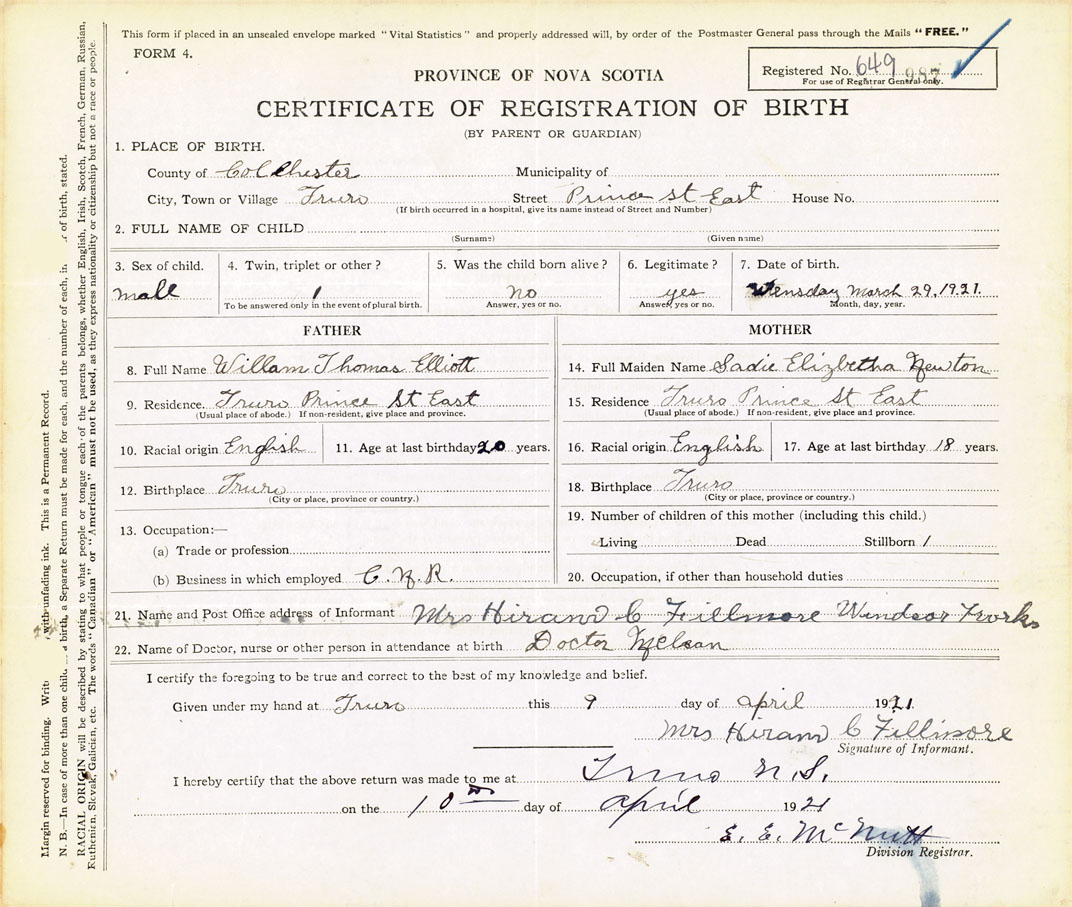 This form if placed in an unsealed envelope marked "Vital Statistics" and properly addressed will, by order of the Postmaster General pass through the Mails "FREE."
FORM 4.
Registered No. 649 987
For use of Registrar General only.
PROVINCE OF NOVA SCOTIA
CERTIFICATE OF REGISTRATION OF BIRTH
(BY PARENT OR GUARDIAN)
1. PLACE OF BIRTH.
County of Colchester Municipality of
City, Town or Village Truro Street Prince St East House No.
(If birth occurred in a hospital, give its name instead of Street and Number)
2. FULL NAME OF CHILD
(Surname) (Given name)
3. Sex of child. 4. Twin, triplet or other? 5. Was the child born alive? 6. Legitimate? 7. Date of birth.
mall 1 no yes Wensday March 29, 1921.
To be answered only in the event of plural birth. Answer, yes or no. Answer, yes or no. Month, day, year.
FATHER MOTHER
8. Full Name Willam Thomas Elliott 14. Full Maiden Name Sadie Elizbetha Newton
9. Residence. Truro Prince St East 15. Residence Truro Prince St East
(Usual place of abode.) If non-resident, give place and province. (Usual place of abode.) If non-resident, give place and province.
10. Racial origin English 11. Age at last birthday 20 years. 16. Racial origin English 17. Age at last birthday 18 years.
12. Birthplace Truro 18. Birthplace Truro
(City or place, province or country.) (City or place, province or country.)
13. Occupation:— 19. Number of children of this mother (including this child.)
(a) Trade or profession Living Dead Stillborn 1
(b) Business in which employed C. N. R. 20. Occupation, if other than household duties
21. Name and Post Office address of Informant Mrs Hiram C Fillmore Windsor Forks
22. Name of Doctor, nurse or other person in attendance at birth Doctor
I certify the foregoing to be true and correct to the best of my knowledge and belief.
Given under my hand at Truro this 9 day of april 1921.
Mrs Hiram C Fillmore
Signature of Informant.
I hereby certify that the above return was made to me at Truro N.S.
on the 10th day of April 1921
E. E. McNutt
Division Registrar.
Margin reserved for binding. with unfading ink. This is a Permanent Record.
N. B.—In case of more than one child birth, a Separate Return must be made for each, and the number of each, in of birth, stated.
RACIAL ORIGIN will be described by stating to what people or tongue each of the parents belongs, whether English, Irish, Scotch, French, German, Russian,
Ruthenian, Slovak, Galician, etc. The words "Canadian" or "American" must not be used, as they express nationality or citizenship but not a race or people.